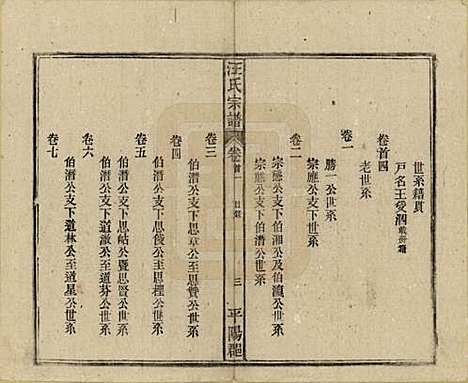 世系籍貫
戶名王愛泗載册籍
卷首四
老世系
卷一
勝一公世系
宗應公支下世系
卷二
宗應公支下伯湘公及伯瀛公世系
宗應公支下伯潛公世系
汪氏宗譜
卷首
目錄
三
平陽郡
卷三
伯潛公支下思草公至思贊公世系
卷四
伯潛公支下思俊公至思裡公世系
卷五
伯潛公支下思岵公暨思賢公世系
卷六
伯潛公支下道淑公至道芬公世系
卷七
伯潛公支下道林公至道星公世系